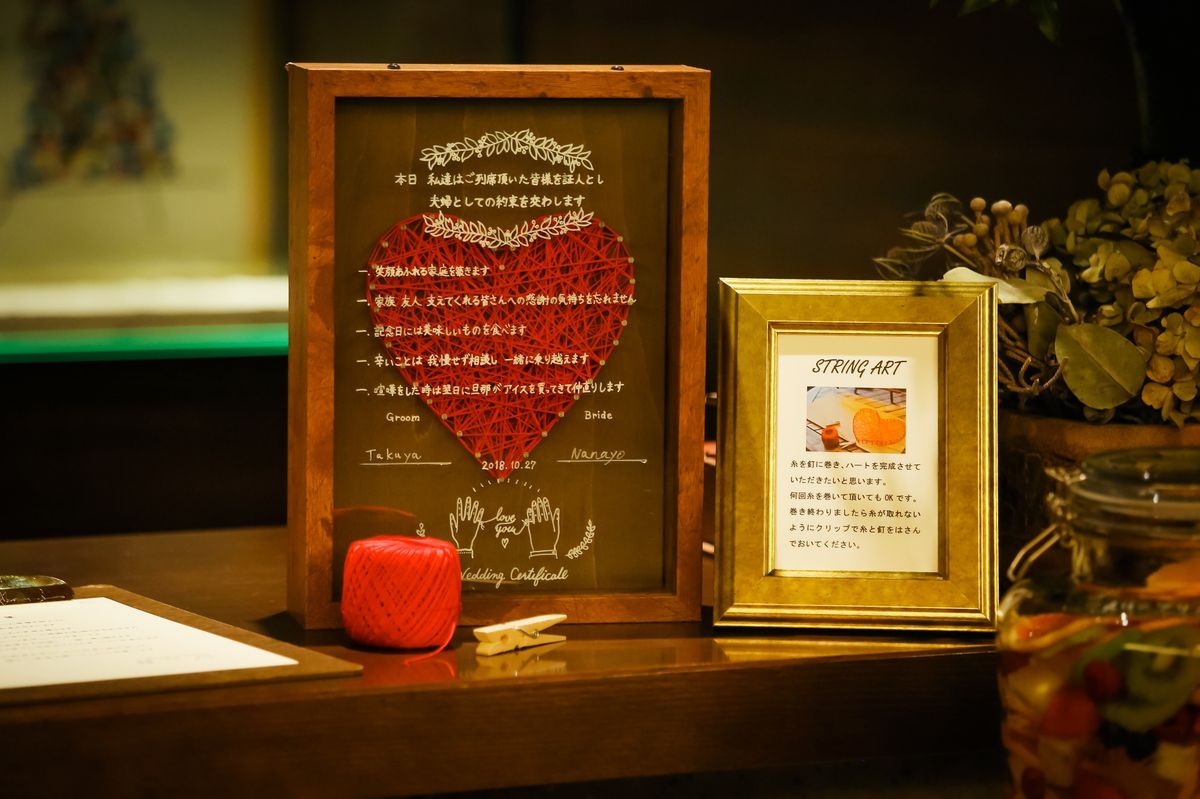 本日 私達はご列席頂いた皆様を証人とし
夫婦としての約束を交わします
一. 笑顔あふれる家庭を築きます
一. 家族 友人 支えてくれる皆さんへの感謝の気持ちを忘れません
一. 記念日には美味しいものを食べます
一. 辛いことは 我慢せず相談し 一緒に乗り越えます
一. 喧嘩をした時は翌日に旦那がアイスを買ってきて仲直りします
Groom Bride
Takuya Nanayo
2018.10.27
love
you
Wedding Certificate
STRING ART
糸を釘に巻き、ハートを完成させて
いただきたいと思います。
何回糸を巻いて頂いても OK です。
巻き終わりましたら糸が取れない
ようにクリップで糸と釘をはさん
でおいてください。